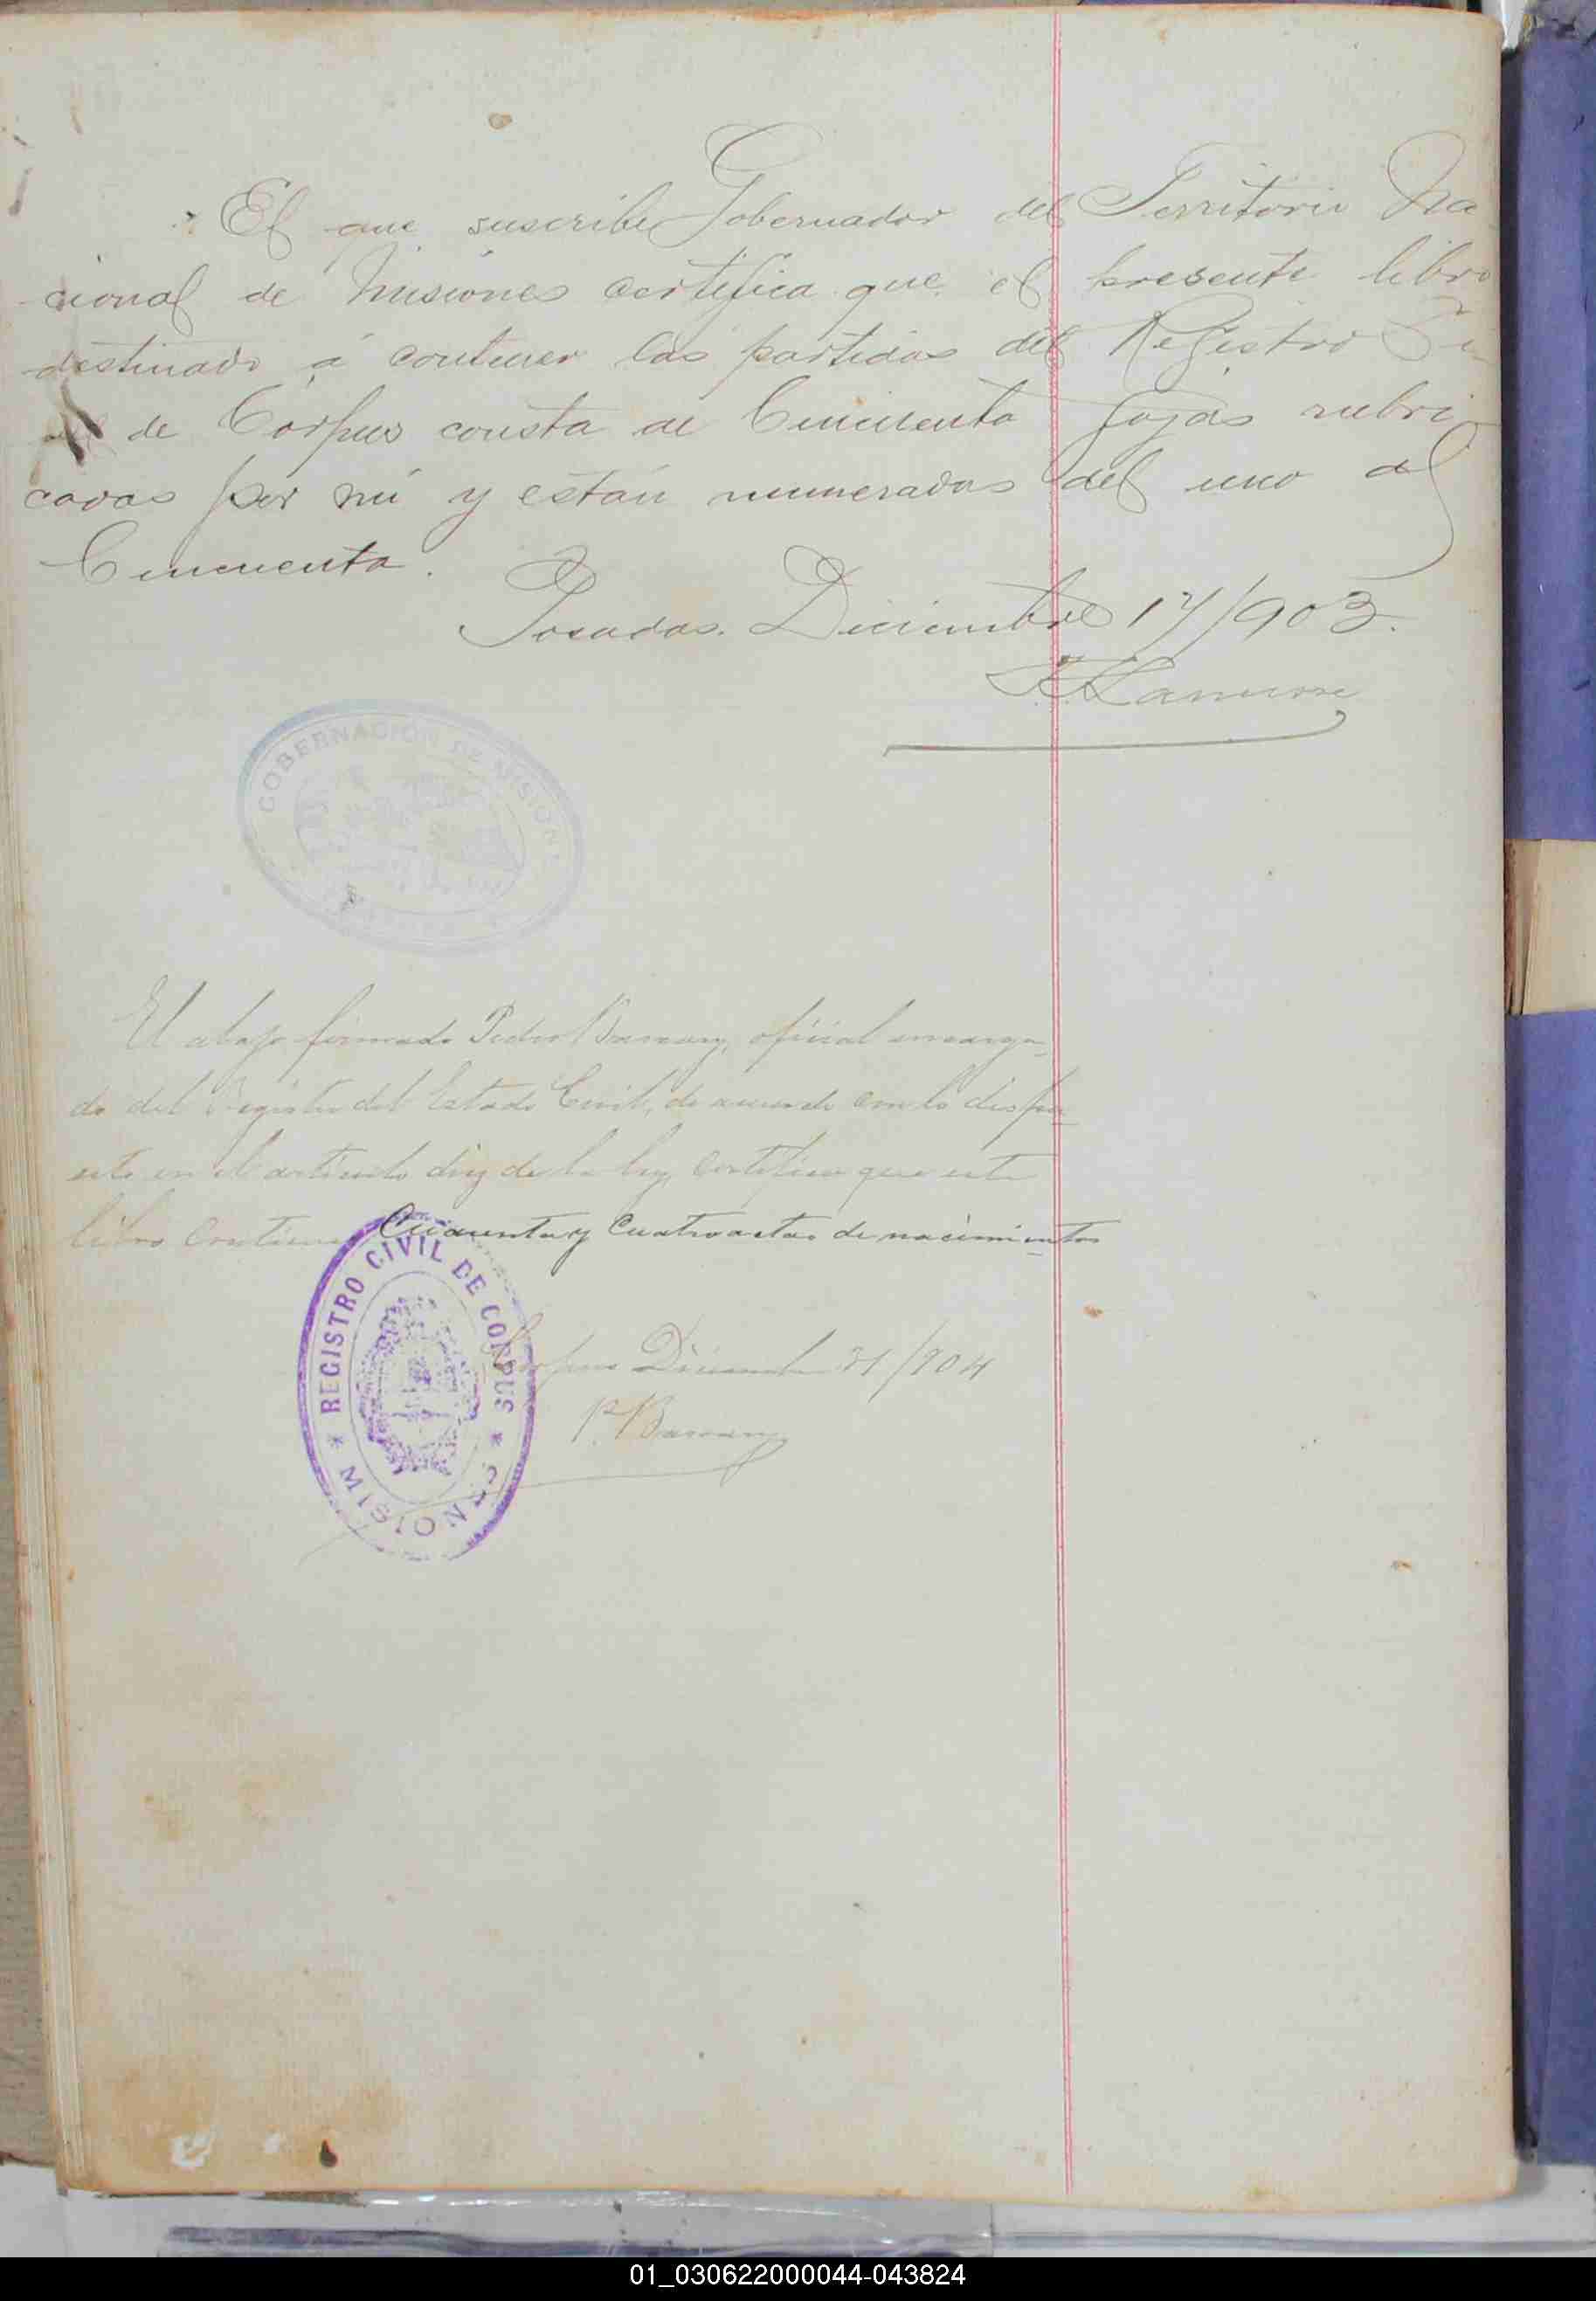 El que suscribe Gobernador del Territorio Na
cional de Misiones certifica que el presente libro
destinado á contener las partidas del Registro Ci
vil de Corpus consta de Cincuenta fojas rubri
cadas por mi y están numeradas del uno al
Cincuenta.
Posadas. Diciembre 17/903.
GOBERNACIÓN DE MISIONES
El abajo firmado Pedro oficial encarga
do del Registro del Estado Civil, de acuerdo con lo dispu
esto en el artículo diez de la ley, certifica que este
libro contiene Cuarenta y Cuatro actas de nacimientos
REGISTRO CIVIL DE CORPUS
* MISIONES *
Corpus Diciembre 31/904
01_030622000044-043824